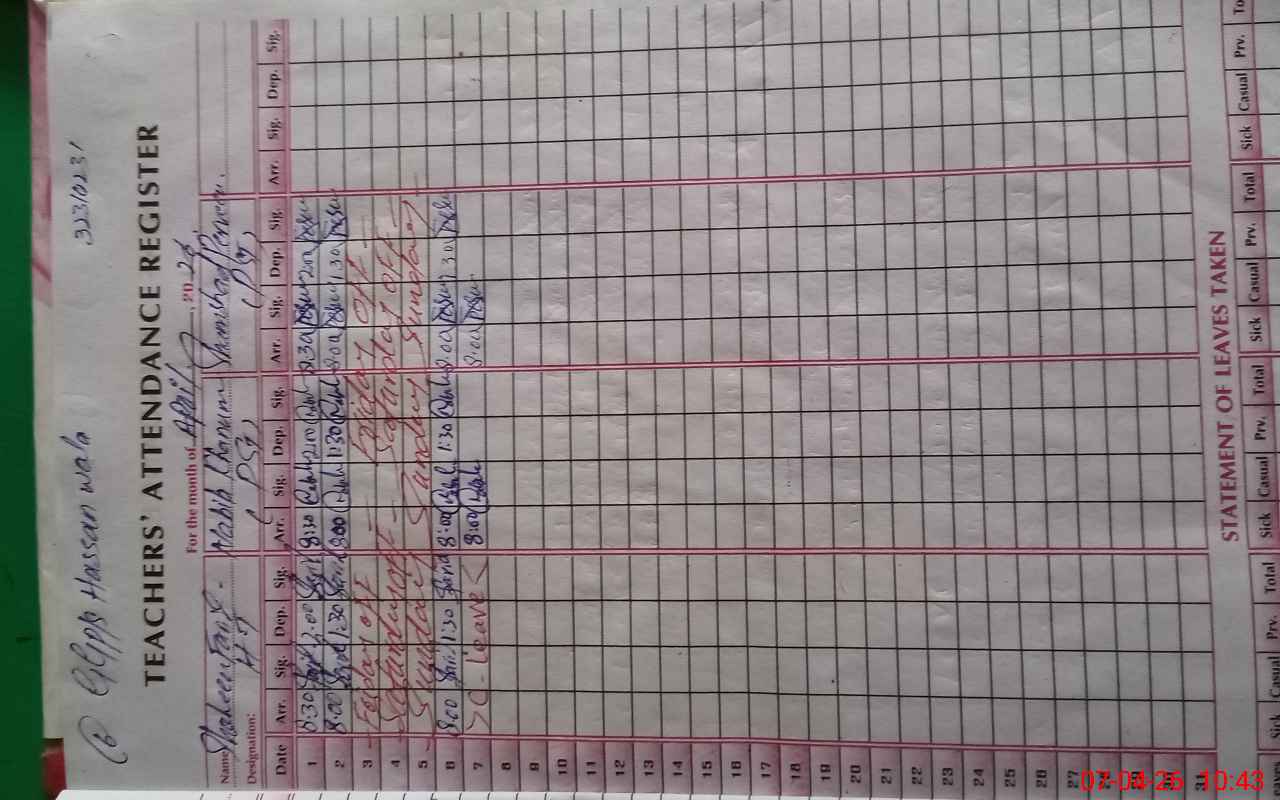 (6) GGPS Hassan wala 32310231
TEACHERS' ATTENDANCE REGISTER
For the month of April, 2026
Name Shaheen Nabila Khanum Shamshad Perveen
Designation: PST PST
Date Arr. Sig. Dep. Sig. Arr. Sig. Dep. Sig. Arr. Sig. Dep. Sig. Arr. Sig. Dep. Sig.
1 8:30 2:00 8:30 2:00 8:30 2:00
2 8:00 1:30 8:00 1:30 8:00 1:30
3 Friday off Friday off
4 Saturday off Saturday off
5 Sunday Sunday Sunday
6 8:00 1:30 8:00 1:30 8:00 1:30
7 C-Leave 8:00 8:00
8
9
10
11
12
13
14
15
16
17
18
19
20
21
22
23
24
25
26
27
28
29
30
31
STATEMENT OF LEAVES TAKEN
Sick Casual Prv. Total Sick Casual Prv. Total Sick Casual Prv. Total Sick Casual Prv. To
07-04-26 10:43